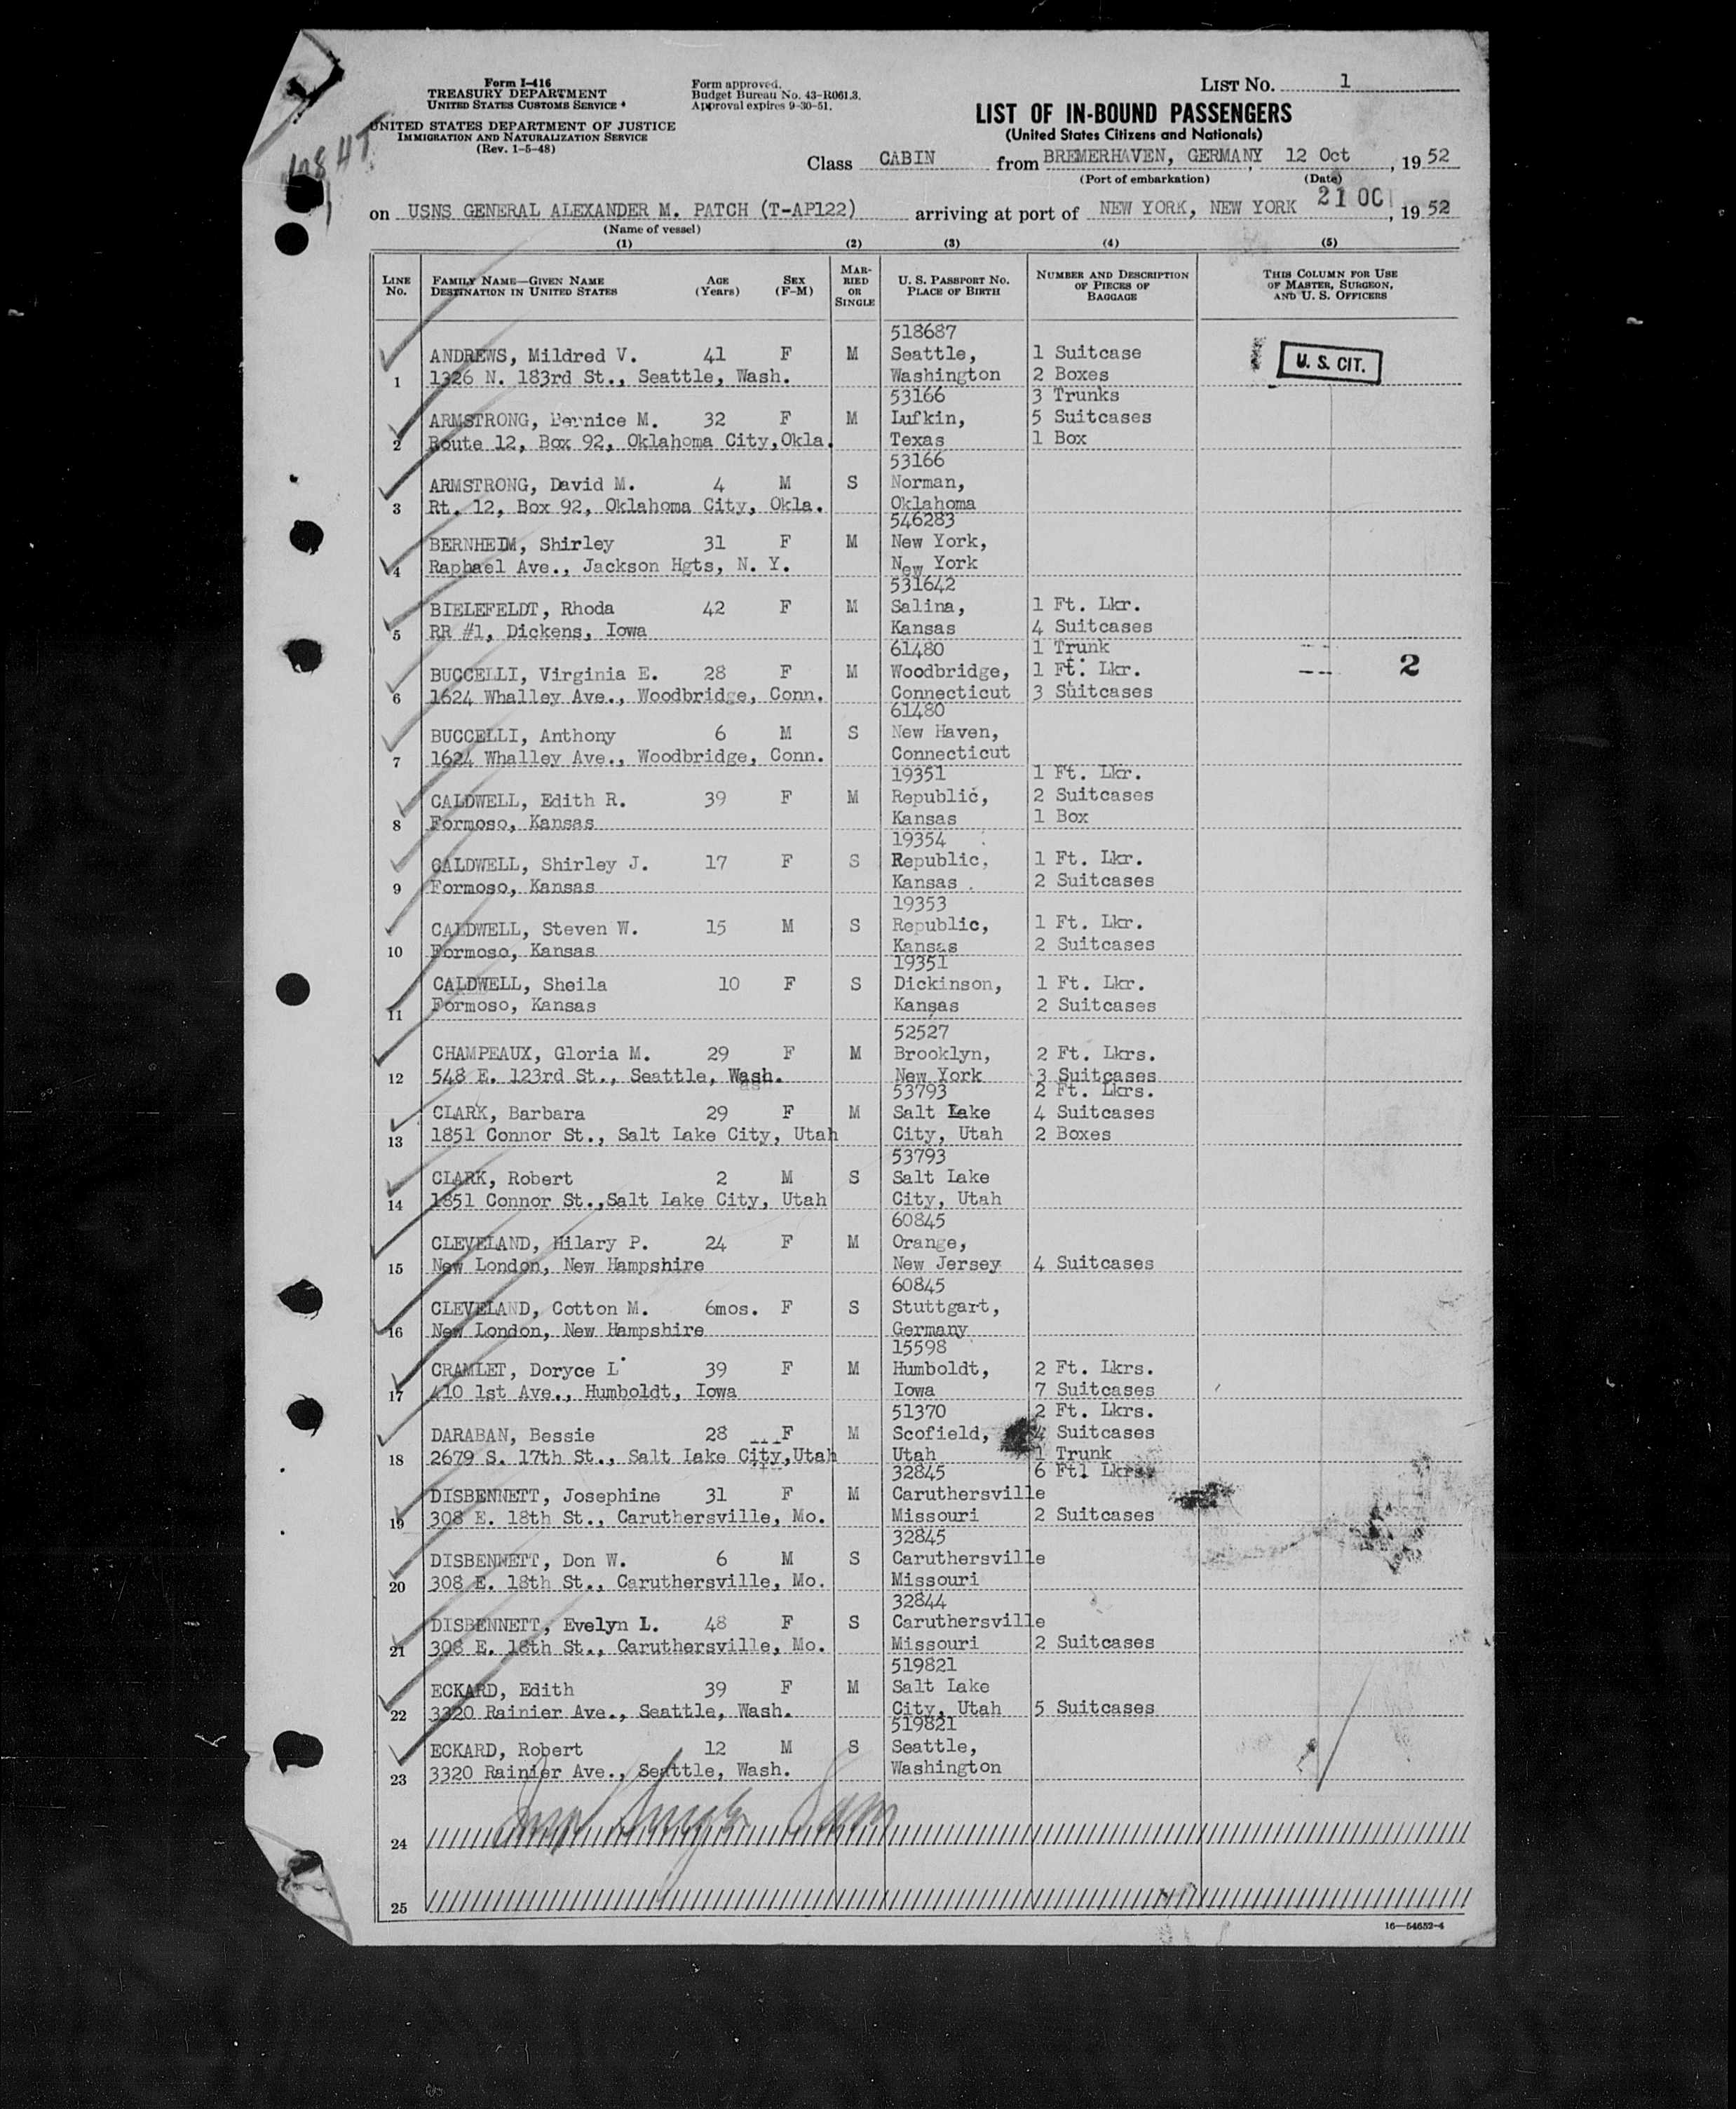 Form I-416
TREASURY DEPARTMENT
UNITED STATES CUSTOMS SERVICE
UNITED STATES DEPARTMENT OF JUSTICE
IMMIGRATION AND NATURALIZATION SERVICE
(Rev. 1-5-48)
Form approved.
Budget Bureau No. 43-R061.3.
Approval expires 9-30-51.
LIST NO. 1
LIST OF IN-BOUND PASSENGERS
(United States Citizens and Nationals)
Class CABIN from BREMERHAVEN, GERMANY, 12 Oct, 1952
(Port of embarkation) (Date)
on USNS GENERAL ALEXANDER M. PATCH (T-AP122) arriving at port of NEW YORK, NEW YORK 21 OC, 1952
(Name of vessel)
(1) (2) (3) (4) (5)
LINE NO. FAMILY NAME—GIVEN NAME DESTINATION IN UNITED STATES AGE (Years) SEX (F-M) MARRIED OR SINGLE U. S. PASSPORT NO. PLACE OF BIRTH NUMBER AND DESCRIPTION OF PIECES OF BAGGAGE THIS COLUMN FOR USE OF MASTER, SURGEON, AND U. S. OFFICERS
518687
ANDREWS, Mildred V. 41 F M Seattle, 1 Suitcase U. S. CIT.
1 1326 N. 183rd St., Seattle, Wash. Washington 2 Boxes
53166 3 Trunks
ARMSTRONG, Bernice M. 32 F M Lufkin, 5 Suitcases
2 Route 12, Box 92, Oklahoma City,Okla. Texas 1 Box
53166
ARMSTRONG, David M. 4 M S Norman,
3 Rt. 12, Box 92, Oklahoma City, Okla. Oklahoma
546283
BERNHEIM, Shirley 31 F M New York,
4 Raphael Ave., Jackson Hgts, N. Y. New York
531642
BIELEFELDT, Rhoda 42 F M Salina, 1 Ft. Lkr.
5 RR #1, Dickens, Iowa Kansas 4 Suitcases
61480 1 Trunk
BUCCELLI, Virginia E. 28 F M Woodbridge, 1 Ft. Lkr. 2
6 1624 Whalley Ave., Woodbridge, Conn. Connecticut 3 Suitcases
61480
BUCCELLI, Anthony 6 M S New Haven,
7 1624 Whalley Ave., Woodbridge, Conn. Connecticut
19351 1 Ft. Lkr.
CALDWELL, Edith R. 39 F M Republic, 2 Suitcases
8 Formoso, Kansas Kansas 1 Box
19354
CALDWELL, Shirley J. 17 F S Republic, 1 Ft. Lkr.
9 Formoso, Kansas Kansas 2 Suitcases
19353
CALDWELL, Steven W. 15 M S Republic, 1 Ft. Lkr.
10 Formoso, Kansas Kansas 2 Suitcases
19351
CALDWELL, Sheila 10 F S Dickinson, 1 Ft. Lkr.
11 Formoso, Kansas Kansas 2 Suitcases
52527
CHAMPEAUX, Gloria M. 29 F M Brooklyn, 2 Ft. Lkrs.
12 548 E. 123rd St., Seattle, Wash. New York 3 Suitcases
53793 2 Ft. Lkrs.
CLARK, Barbara 29 F M Salt Lake 4 Suitcases
13 1851 Connor St., Salt Lake City, Utah City, Utah 2 Boxes
53793
CLARK, Robert 2 M S Salt Lake
14 1851 Connor St.,Salt Lake City, Utah City, Utah
60845
CLEVELAND, Hilary P. 24 F M Orange,
15 New London, New Hampshire New Jersey 4 Suitcases
60845
CLEVELAND, Cotton M. 6mos. F S Stuttgart,
16 New London, New Hampshire Germany
15598
CRAMLET, Doryce L. 39 F M Humboldt, 2 Ft. Lkrs.
17 410 1st Ave., Humboldt, Iowa Iowa 7 Suitcases
51370 2 Ft. Lkrs.
DARABAN, Bessie 28 F M Scofield, 4 Suitcases
18 2679 S. 17th St., Salt Lake City,Utah Utah 1 Trunk
32845 6 Ftl Lkrs.
DISBENNETT, Josephine 31 F M Caruthersville
19 308 E. 18th St., Caruthersville, Mo. Missouri 2 Suitcases
32845
DISBENNETT, Don W. 6 M S Caruthersville
20 308 E. 18th St., Caruthersville, Mo. Missouri
32844
DISBENNETT, Evelyn L. 48 F S Caruthersville
21 308 E. 18th St., Caruthersville, Mo. Missouri 2 Suitcases
519821
ECKARD, Edith 39 F M Salt Lake
22 3320 Rainier Ave., Seattle, Wash. City, Utah 5 Suitcases
519821
ECKARD, Robert 12 M S Seattle,
23 3320 Rainier Ave., Seattle, Wash. Washington
24
25
16—54652-4